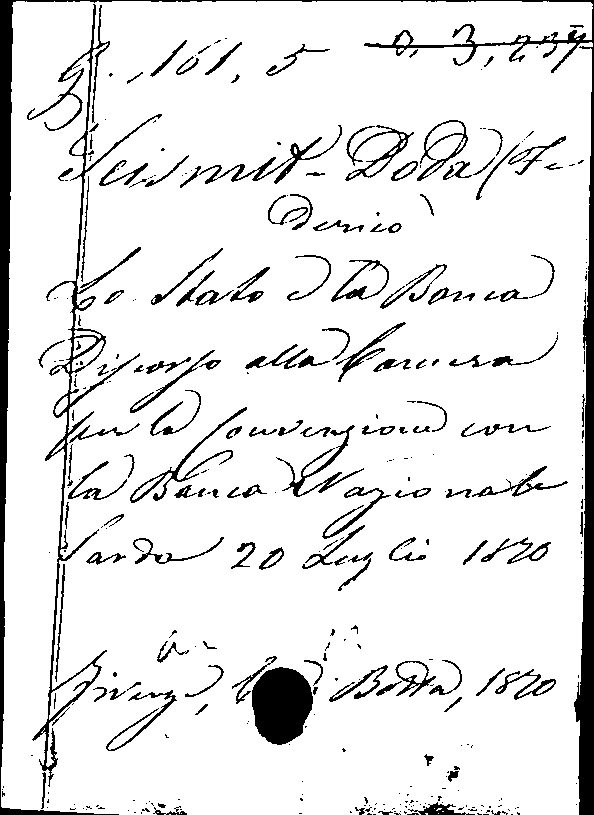 B. 161, 5 0. 3, 237
Seismit-Doda (Fe
derico)
Lo Stato e la Banca
Discorso alla Camera
per la Convenzione con
la Banca Nazionale
Sarda 20 Luglio 1870
Firenze, Botta, 1870